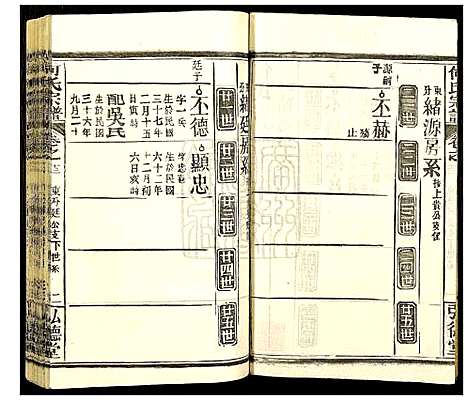 何氏宗譜
弘德堂
東升緒源房系
廿一世
廿二世
廿三世
廿四世
廿五世
源嗣子
丕赫
殤止
緒延房系
廿一世
廿二世
廿三世
廿四世
廿五世
延子
丕德
生於民國
三十七年
二月十五
日寅時
配吳氏
生於民國
三十六年
九月二十
顯忠
字忠兵
生於民國
六十二年
十二月初
六日亥時
何氏宗譜
東升延公支下世系
弘德堂